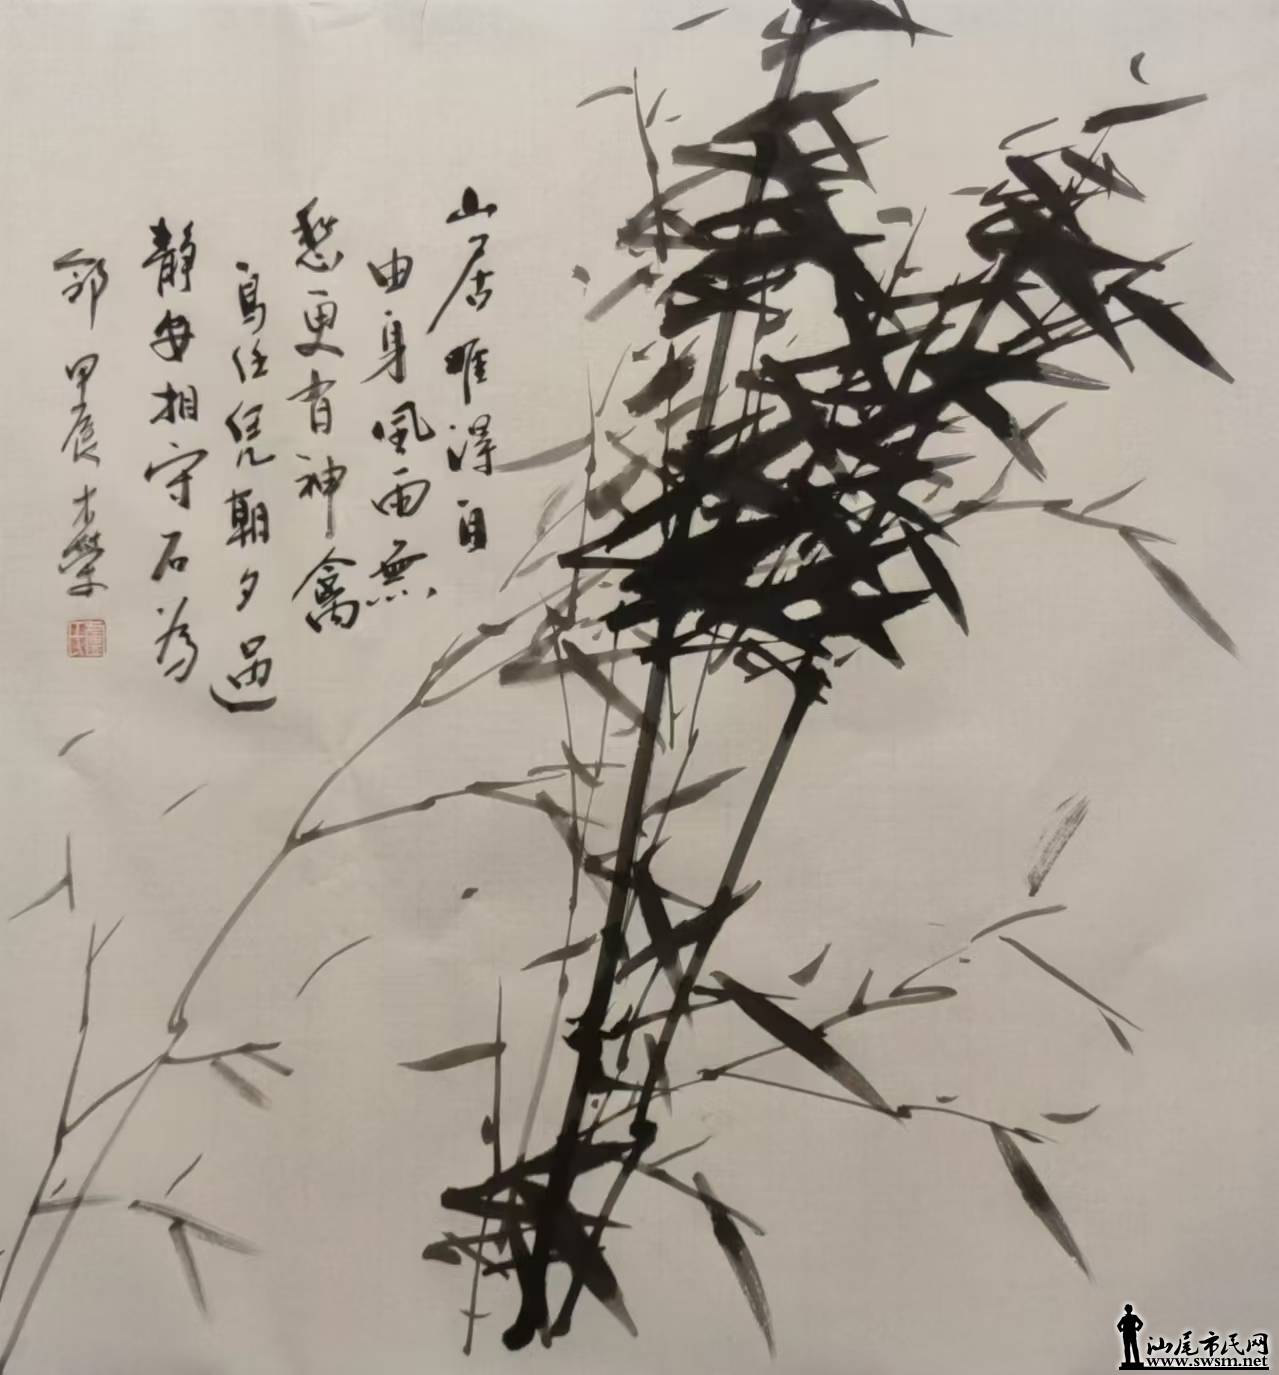 山居唯得自
由身風雨無
愁更有神禽
鳥任凭朝夕過
靜安相守石為
鄰 甲辰 木榮
汕尾市民网
www.swsm.net